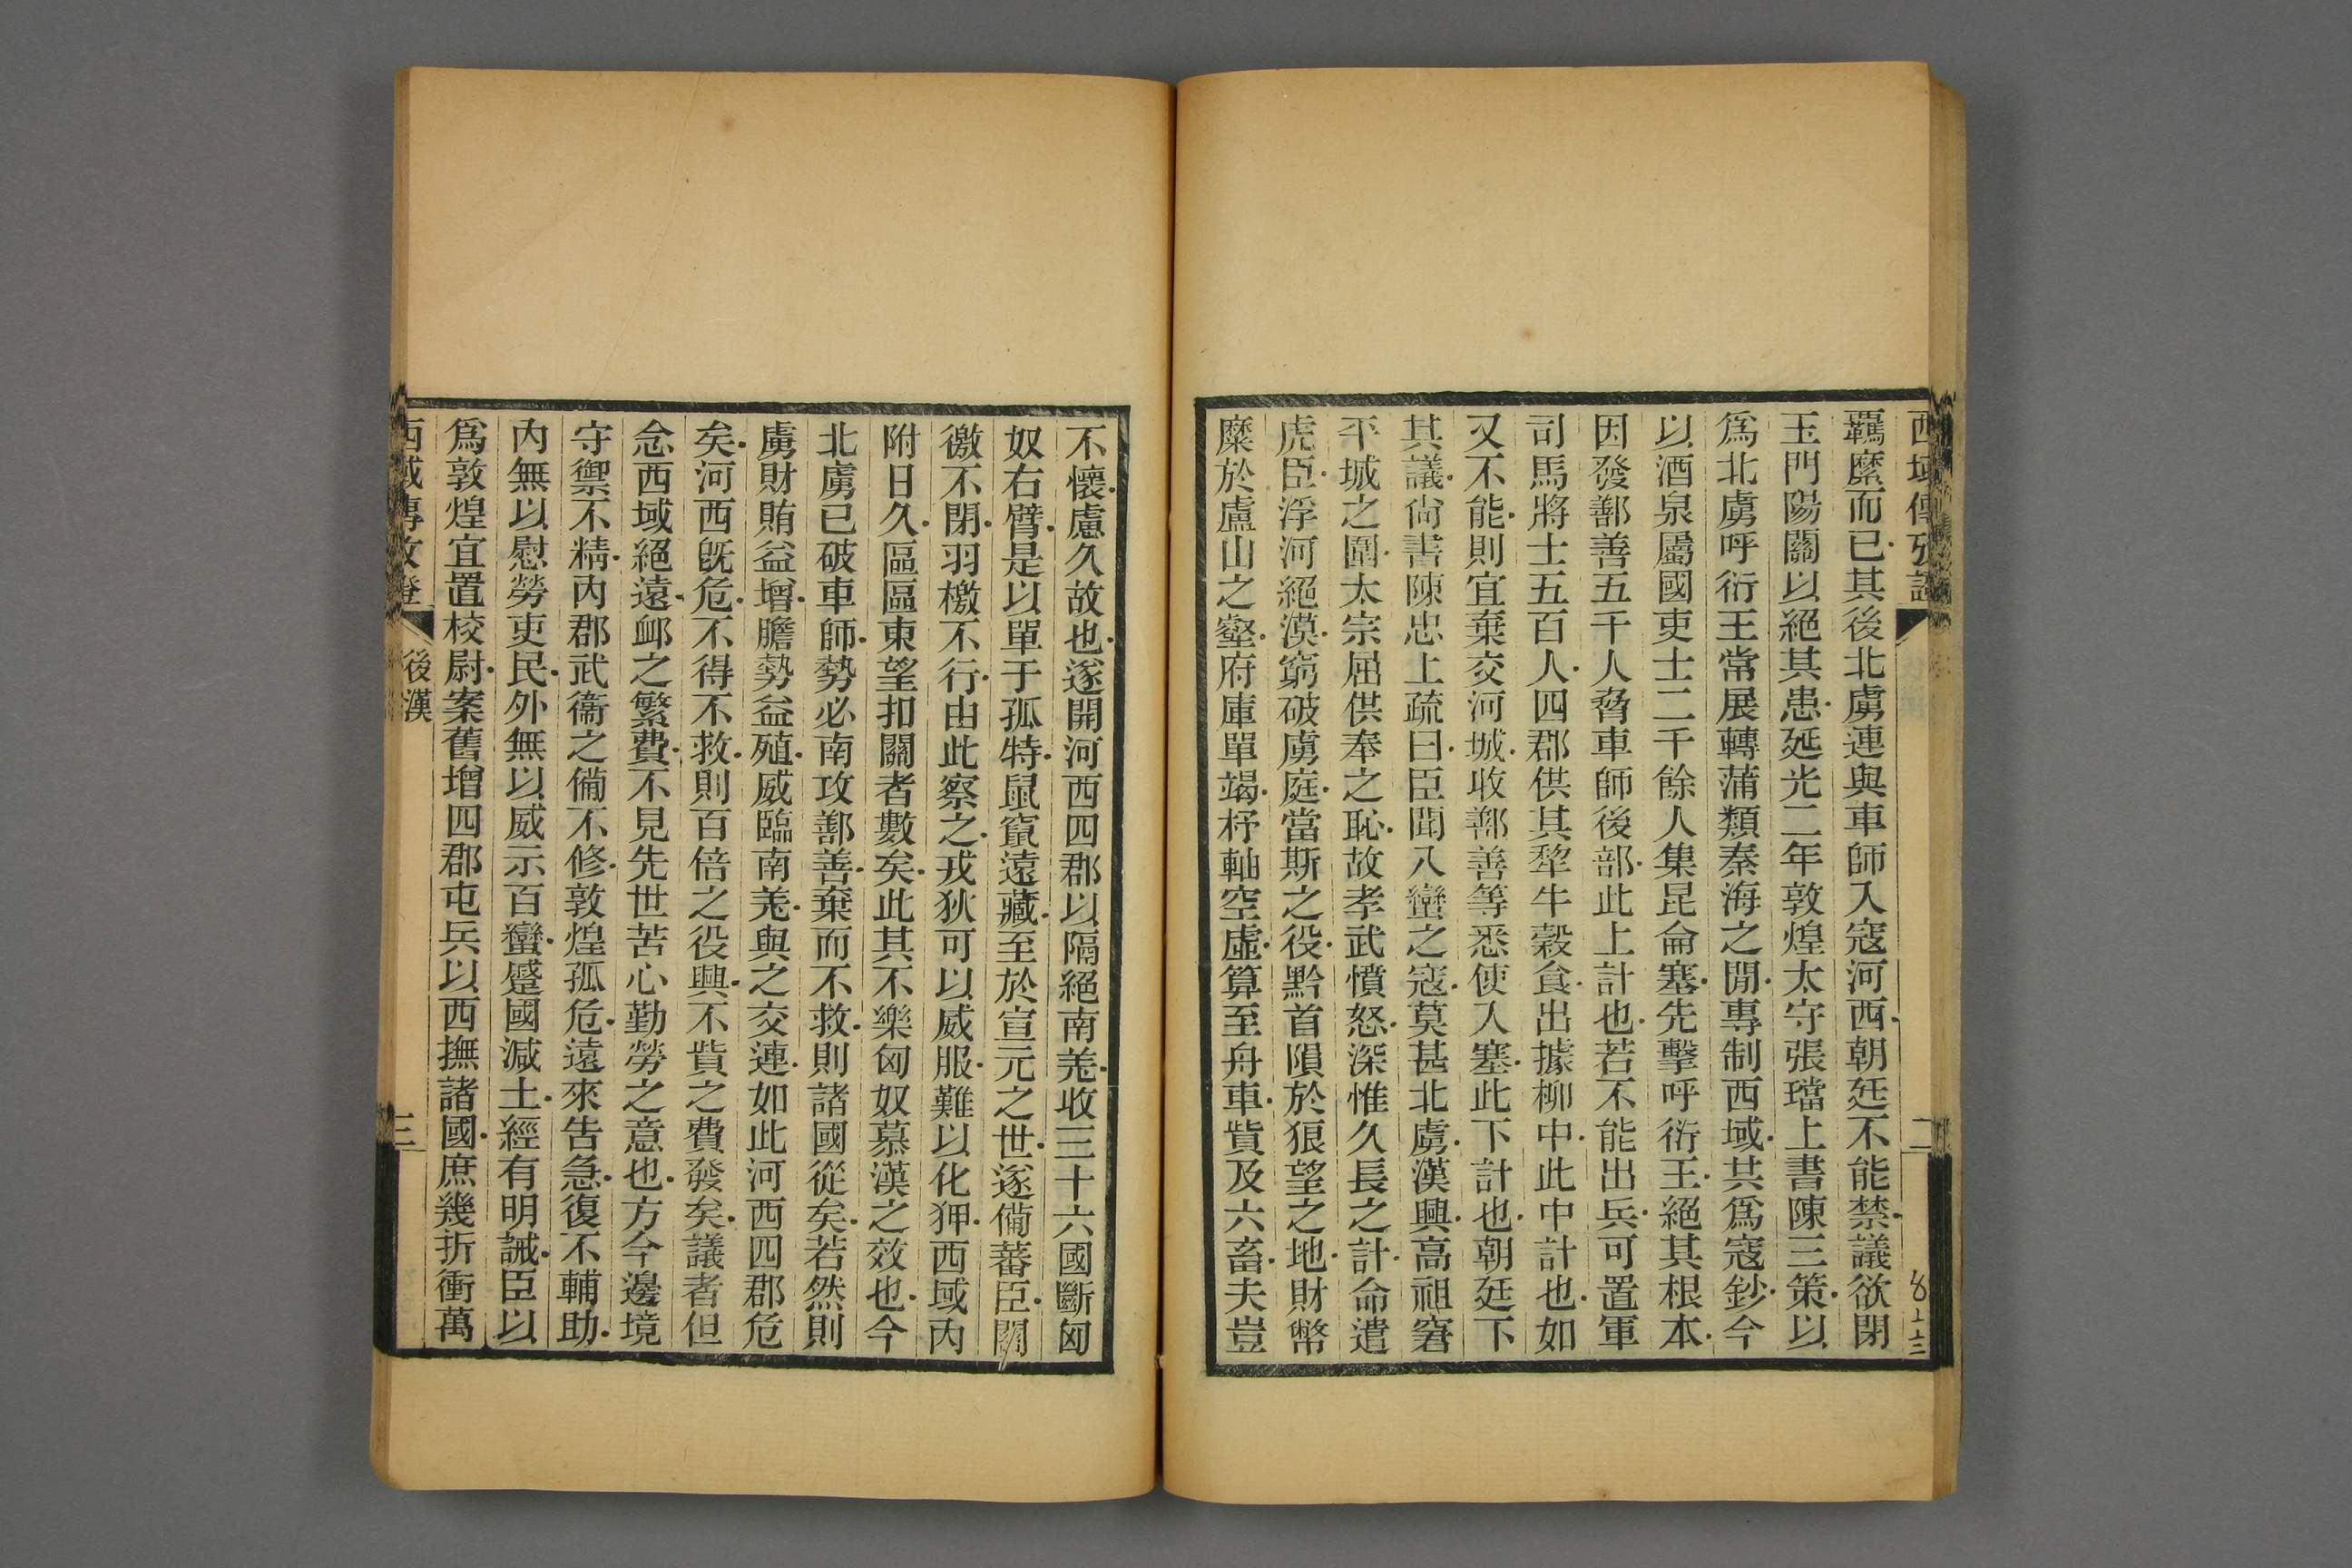 西域傳攷證
二
8上三
羈縻而已其後北虜連與車師入寇河西朝廷不能禁議欲閉
玉門陽關以絕其患延光二年敦煌太守張璫上書陳三策以
爲北虜呼衍王常展轉蒲類秦海之閒專制西域共爲寇鈔今
以酒泉屬國吏士二千餘人集昆侖塞先擊呼衍王絕其根本
因發鄯善五千人脅車師後部此上計也若不能出兵可置軍
司馬將士五百人四郡供其犂牛穀食出據柳中此中計也如
又不能則宜棄交河城收鄯善等悉使入塞此下計也朝廷下
其議尙書陳忠上疏曰臣聞八蠻之寇莫甚北虜漢興高祖窘
平城之圍太宗屈供奉之恥故孝武憤怒深惟久長之計命遣
虎臣浮河絕漠窮破虜庭當斯之役黔首隕於狼望之地財幣
糜於盧山之壑府庫單竭杼軸空虛算至舟車貲及六畜夫豈
不懷慮久故也遂開河西四郡以隔絕南羌收三十六國斷匈
奴右臂是以單于孤特鼠竄遠藏至於宣元之世遂備蕃臣關
徼不閉羽檄不行由此察之戎狄可以威服難以化狎西域內
附日久區區東望扣關者數矣此其不樂匈奴慕漢之效也今
北虜已破車師勢必南攻鄯善棄而不救則諸國從矣若然則
虜財賄益增膽勢益殖威臨南羌與之交連如此河西四郡危
矣河西旣危不得不救則百倍之役興不貲之費發矣議者但
念西域絕遠卹之繁費不見先世苦心勤勞之意也方今邊境
守禦不精內郡武衞之備不修敦煌孤危遠來告急復不輔助
內無以慰勞吏民外無以威示百蠻蹙國減土經有明誡臣以
爲敦煌宜置校尉案舊增四郡屯兵以西撫諸國庶幾折衝萬
西域傳攷證
後漢
三